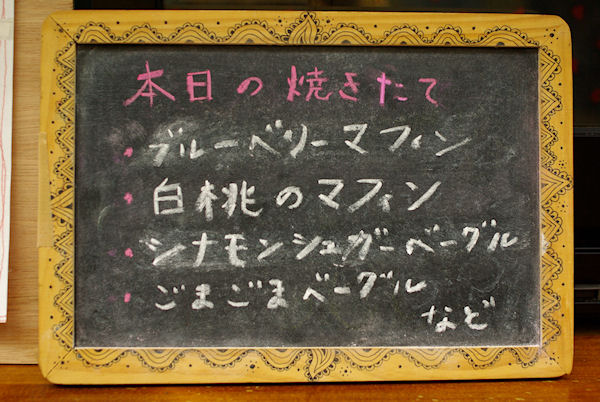 本日の焼きたて
・ブルーベリーマフィン
・白桃のマフィン
・シナモンシュガーベーグル
・ごまごまベーグル
など